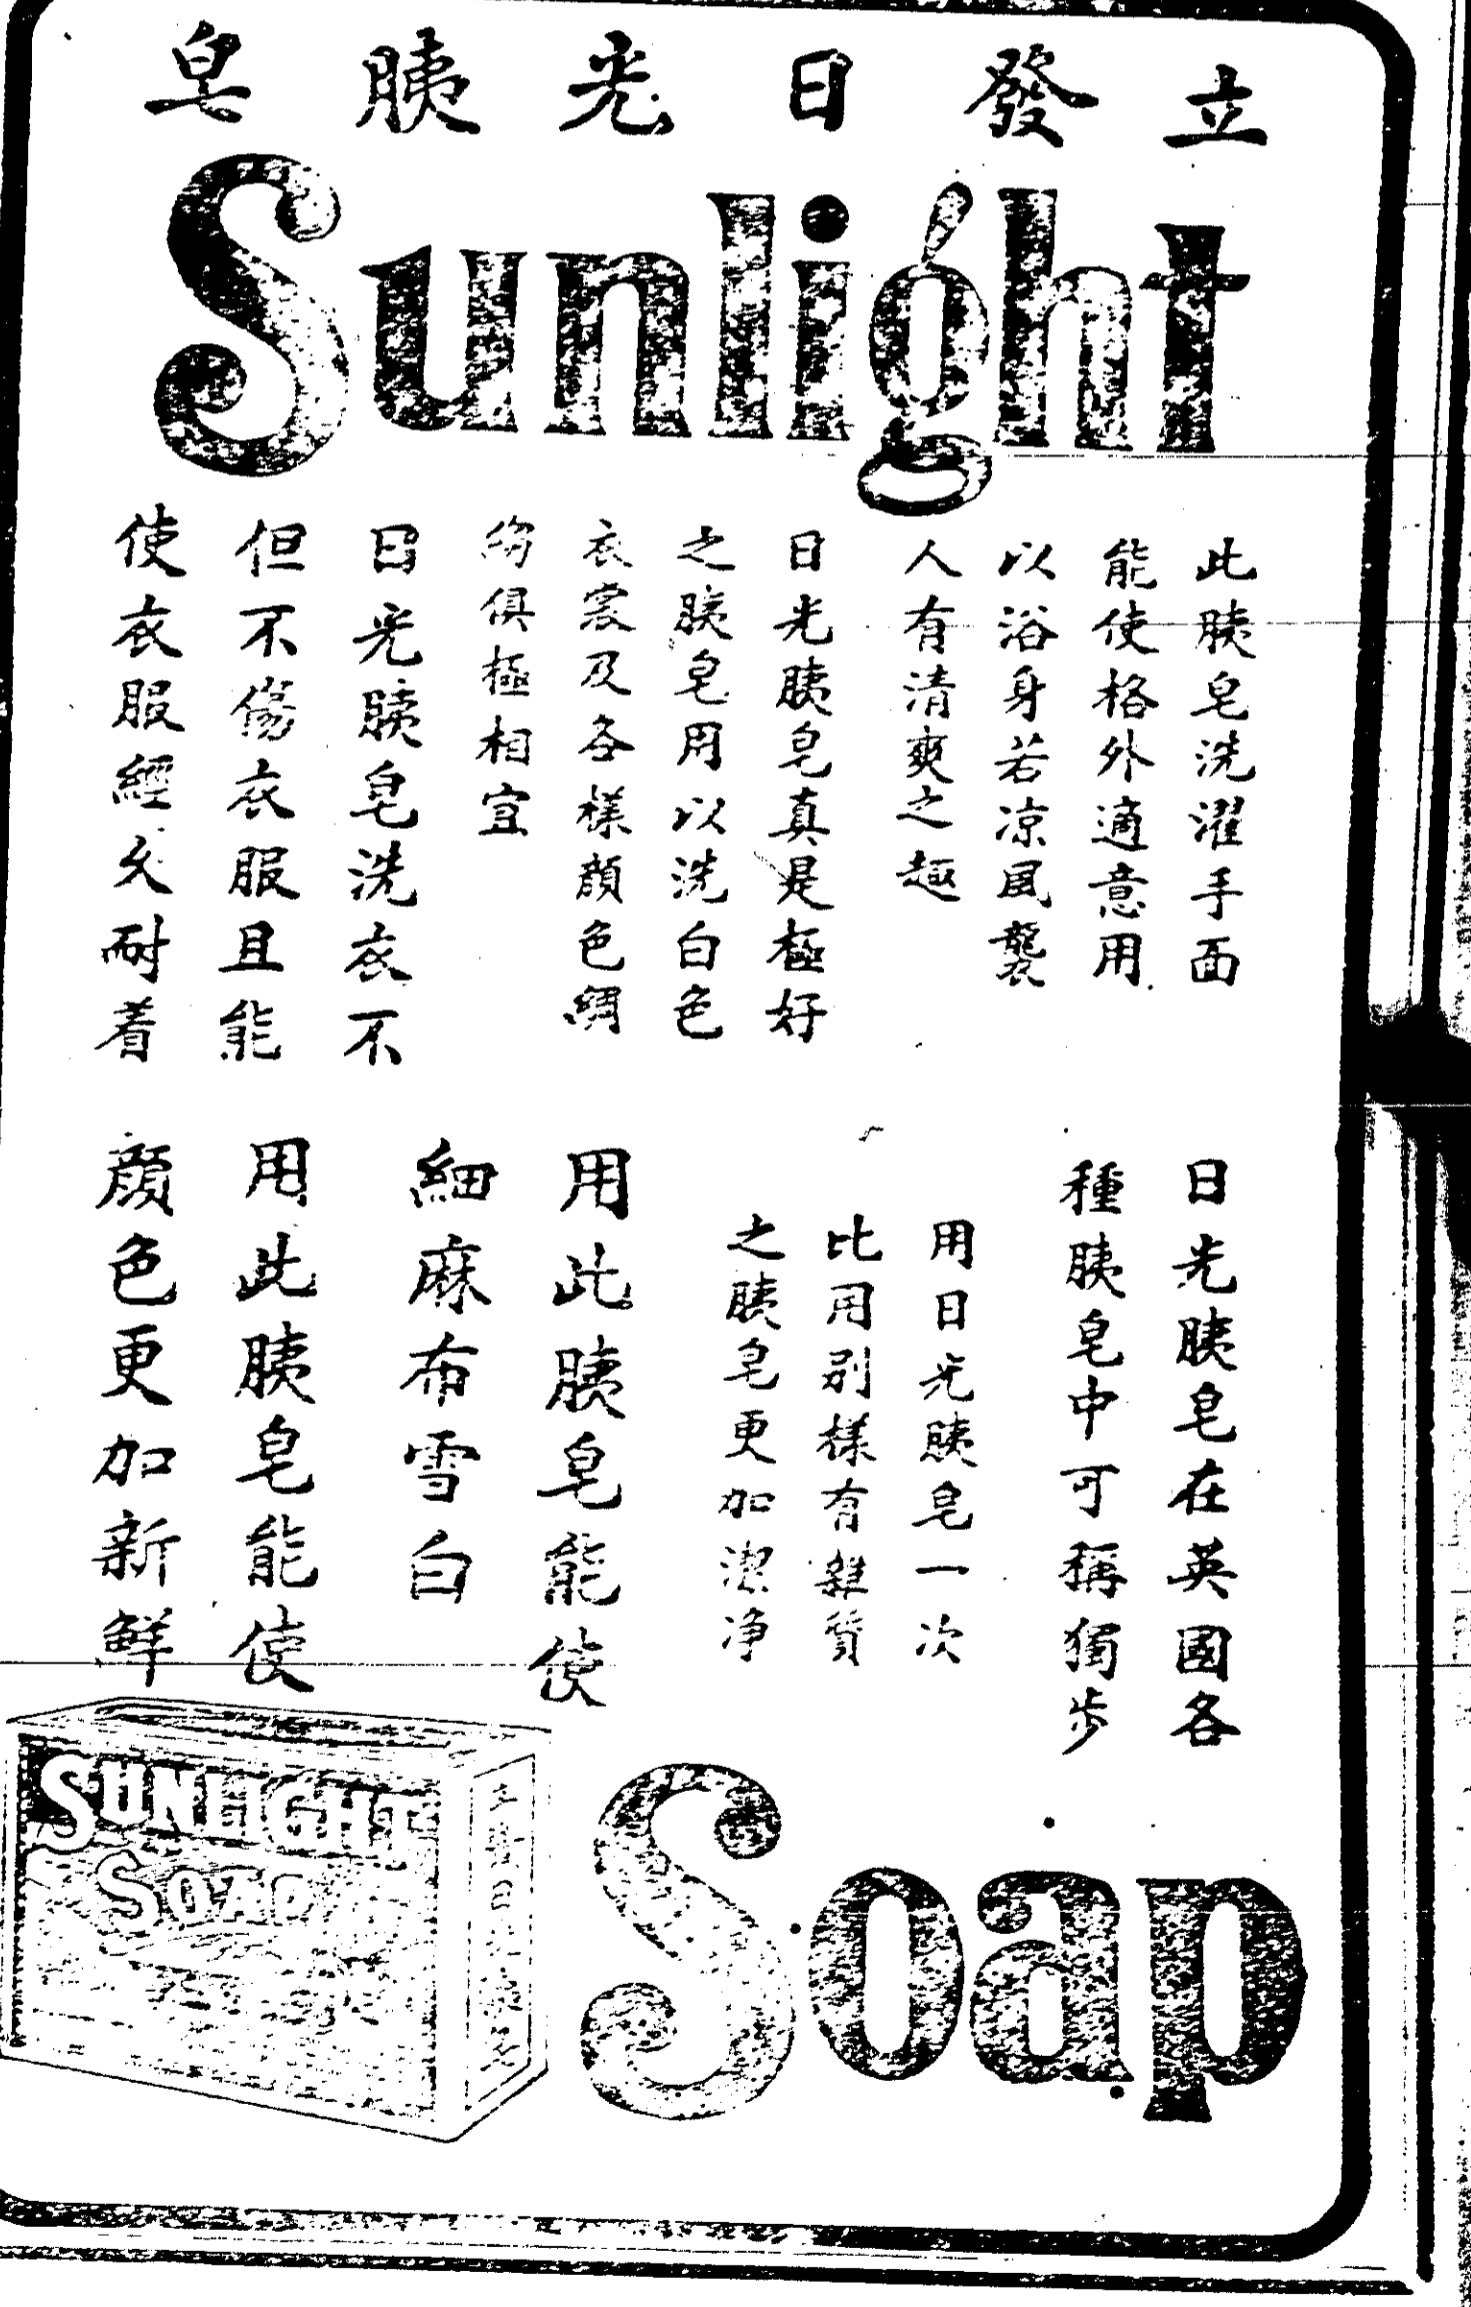 立發日光胰皂
Sunlight
此胰皂洗濯手面
能使格外適意用
以浴身若凉風襲
人有清爽之趣
日光胰皂真是極好
之胰皂用以洗白色
衣裳及各樣顔色綢
縐俱極相宜
日光胰皂洗衣不
但不傷衣服且能
使衣服經久耐着
日光胰皂在英國各
種胰皂中可稱獨步
用日光胰皂一次
比用别樣有雜質
之胰皂更加潔净
用此胰皂能使
細麻布雪白
用此胰皂能使
顔色更加新鮮
SUNLIGHT
SOAP
Soap